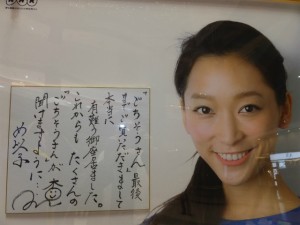 NHK
"ごちそうさん" 最後
まで 見ていただきまして
本当に
有難う御座居ました。
これからも たくさんの
"ごちそうさん"が
聞けますように…
め以子
杏